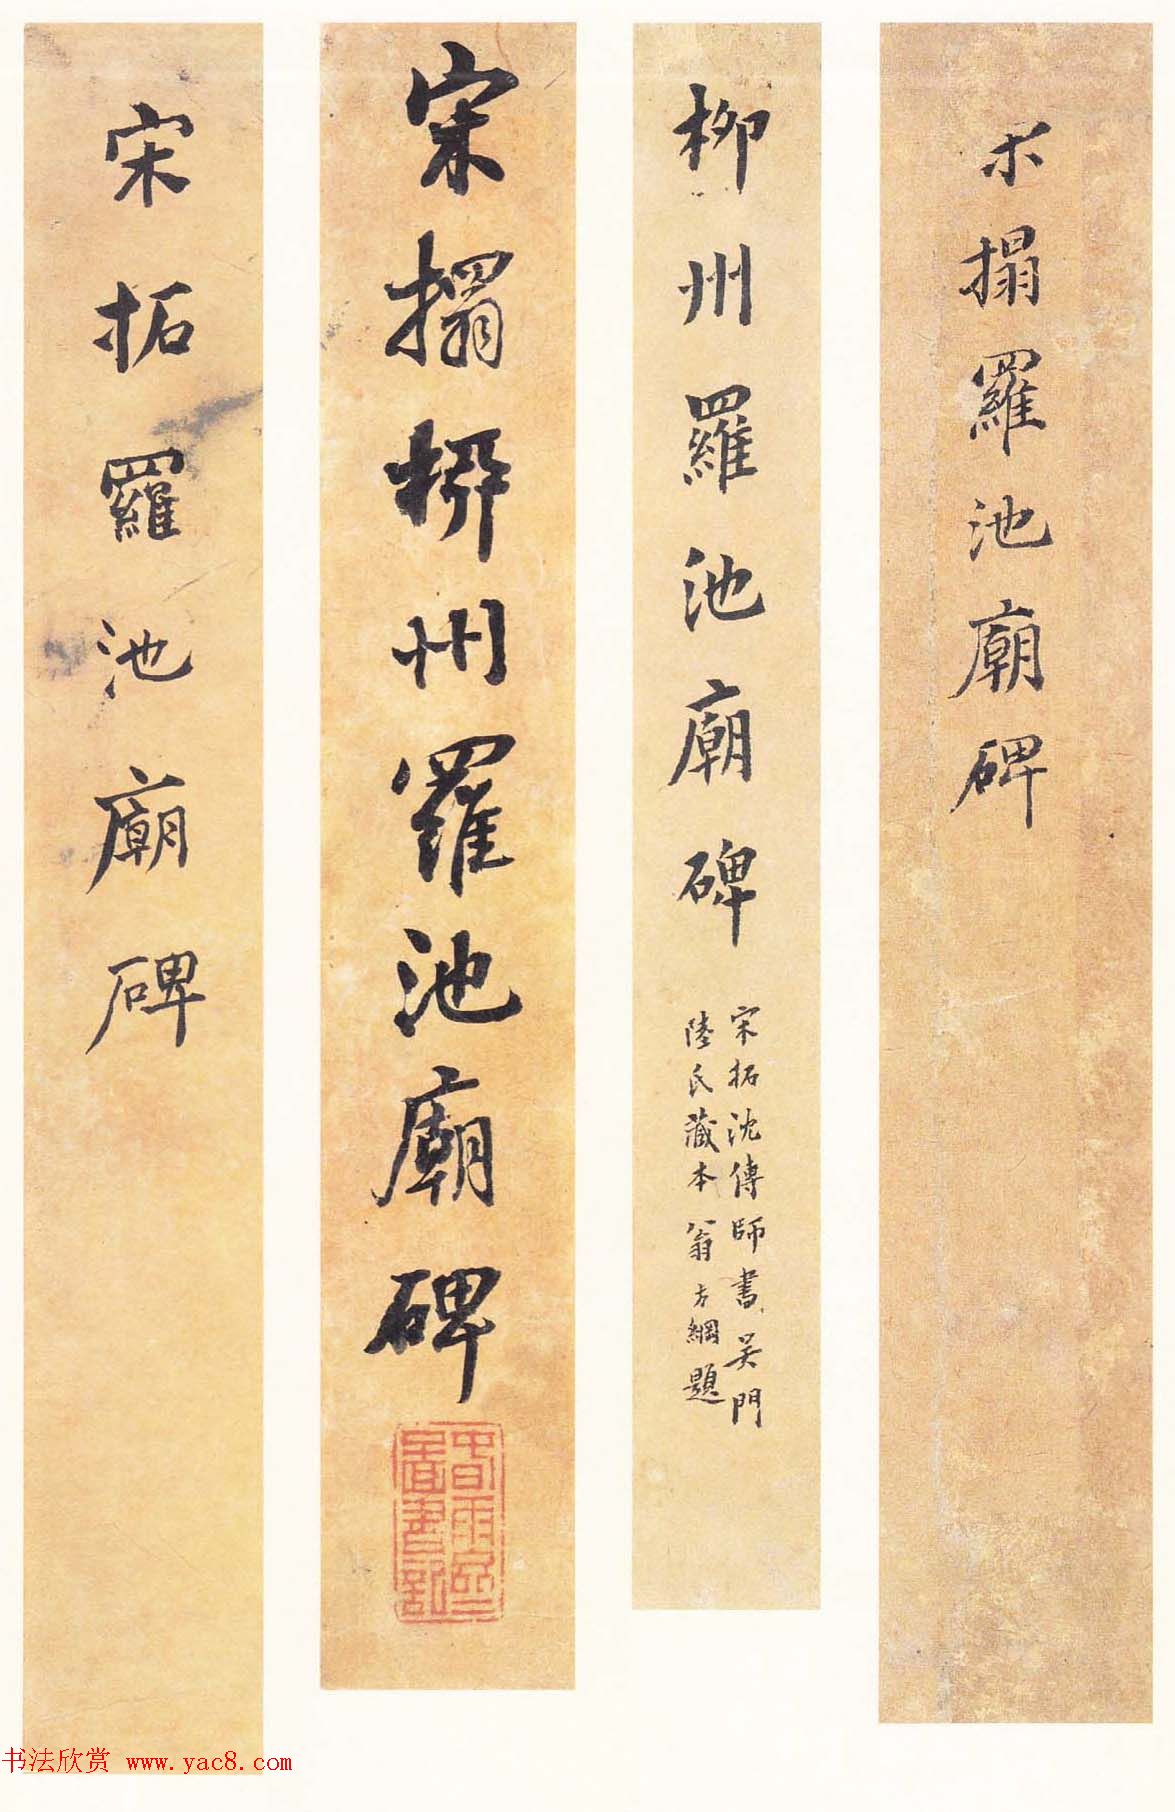 宋搨羅池廟碑
柳州羅池廟碑
宋拓沈傳師書吳門
陸氏藏本翁方綱題
宋搨柳州羅池廟碑
宋拓羅池廟碑
书法欣赏 www.yac8.com